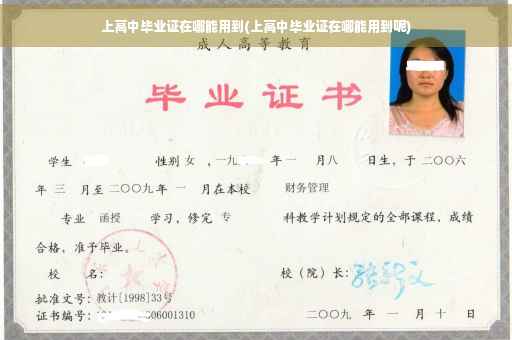 上高中毕业证在哪能用到(上高中毕业证在哪能用到呢)
成人高等教育
毕业证书
学生 性别 女 ,一九 年 一 月八 日生,于 二〇〇六
年 三 月至 二〇〇九 年 一 月在本校 财务管理
专业 函授 学习,修完 专 科教学计划规定的全部课程,成绩
合格,准予毕业。
校 名: 校(院)长:
批准文号:教计[1998]33号
证书编号: 06001310 二〇〇九 年 一 月 十 日